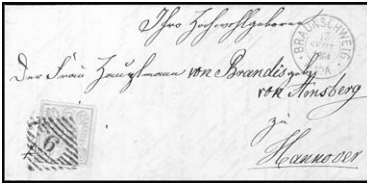 Ihro Hochwohlgeboren
BRAUNSCHWEIG
SEPT
Der Frau Hauptmann von Brandis geb.
von Arnsberg
zu
Hannover